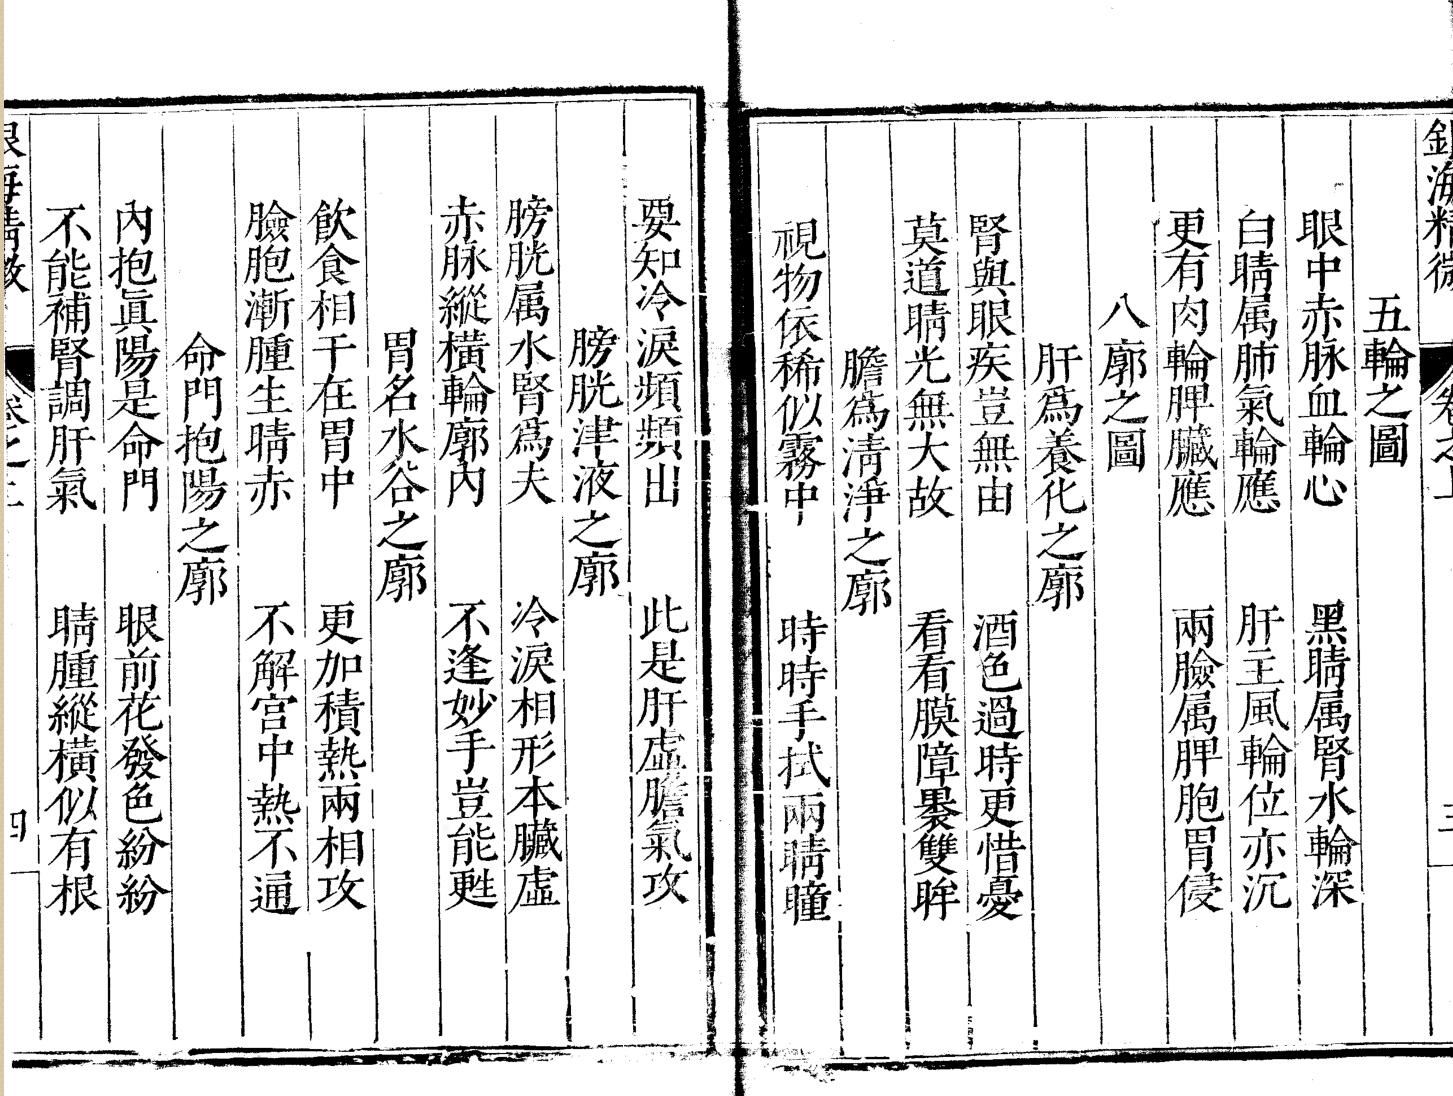 銀海精微 卷之上 三
五輪之圖
眼中赤脉血輪心 黑睛属腎水輪深
白睛属肺氣輪應 肝主風輪位亦沉
更有肉輪脾臟應 兩臉属脾胞胃侵
八廓之圖
肝爲養化之廓
腎與眼疾豈無由 酒色過時更惜憂
莫道睛光無大故 看看膜障褁雙眸
膽爲清淨之廓
視物依稀似霧中 時時手拭兩睛瞳
要知冷淚頻頻出 此是肝虛膽氣攻
膀胱津液之廓
膀胱属水腎爲夫 冷淚相形本臟虛
赤脉縱橫輪廓內 不逢妙手豈能甦
胃名水谷之廓
飲食相干在胃中 更加積熱兩相攻
臉胞漸腫生睛赤 不解宮中熱不通
命門抱陽之廓
內抱眞陽是命門 眼前花發色紛紛
不能補腎調肝氣 睛腫縱橫似有根
銀海精微 卷之上 四